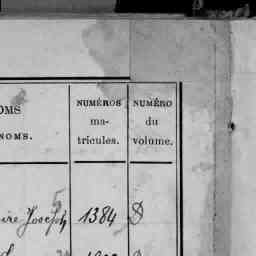 OMS
NOMS.
NUMÉROS
ma-
tricules.
NUMÉRO
du
volume.
ire Joseph 1384 D